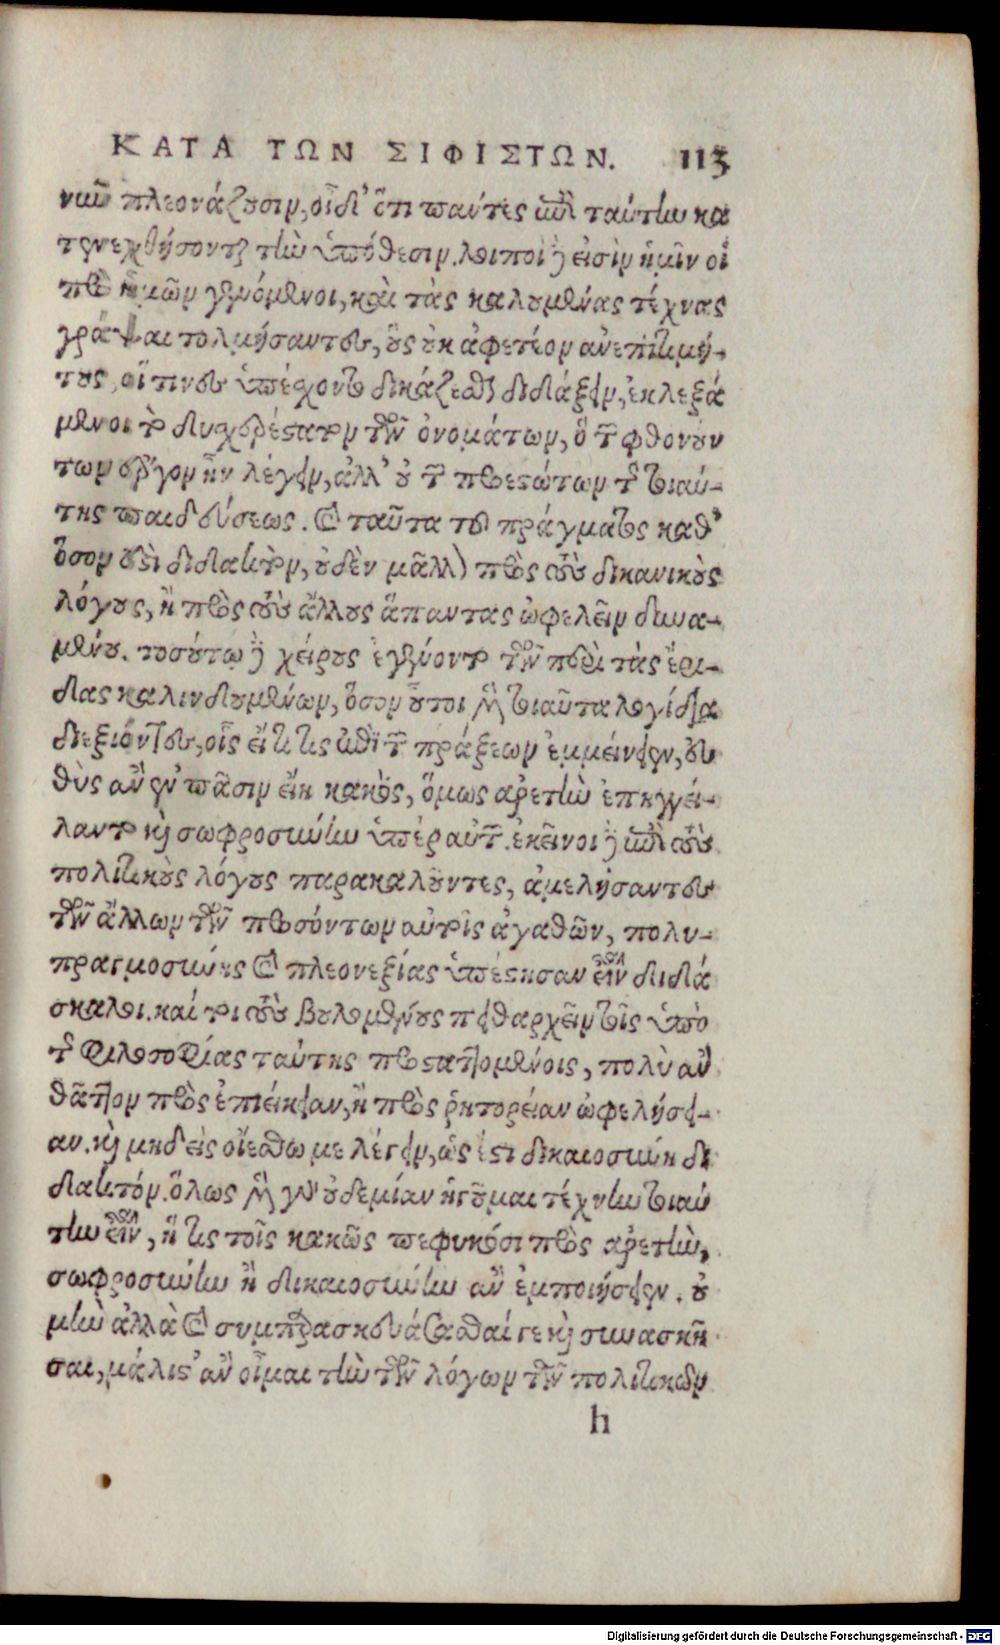 ΚΑΤΑ ΤΩΝ ΣΙΦΙΣΤΩΝ. 113
νῦν πλεονάζουσιν, οἶδ' ὅτι πάντες ἐπὶ ταύτην κα
τενεχθήσονται τὴν ὑπόθεσιν. λοιποὶ δ' εἰσὶν ἡμῖν οἱ
πρὸ ἡμῶν γενόμενοι, καὶ τὰς καλουμένας τέχνας
γράψαι τολμήσαντες, οὓς οὐκ ἀφετέον ἀνεπιτιμή-
τους, οἵ τινες ὑπέσχοντο δικάζεσθαι διδάξειν, ἐκλεξά
μενοι τὸ δυσχερέστατον τῶν ὀνομάτων, ὃ τῶν φθονούν
των ἔργον ἦν λέγειν, ἀλλ' οὐ τῶν προεστώτων τῆς τοιαύ-
της παιδεύσεως. καὶ ταῦτα τοῦ πράγματος καθ'
ὅσον ἐστὶ διδακτὸν, οὐδὲν μᾶλλον πρὸς τοὺς δικανικοὺς
λόγους, ἢ πρὸς τοὺς ἄλλους ἅπαντας ὠφελεῖν δυνα-
μένου. τοσούτῳ δὲ χείρους ἐγένοντο τῶν περὶ τὰς ἔρι-
δας καλινδουμένων, ὅσον οὗτοι μὲν τοιαῦτα λογίδια
διεξιόντες, οἷς εἴ τις ἐπὶ τῶν πράξεων ἐμμείνειεν, εὐ
θὺς ἂν ἐν πᾶσιν εἴη κακοῖς, ὅμως ἀρετὴν ἐπηγγεί-
λαντο καὶ σωφροσύνην ὑπὲρ αὐτῶν. ἐκεῖνοι δ' ἐπὶ τοὺς
πολιτικοὺς λόγους παρακαλοῦντες, ἀμελήσαντες
τῶν ἄλλων τῶν προσόντων αὐτοῖς ἀγαθῶν, πολυ-
πραγμοσύνης καὶ πλεονεξίας ὑπέστησαν εἶναι διδά
σκαλοι. καί τοι τοὺς βουλομένους πειθαρχεῖν τοῖς ὑπὸ
τῆς φιλοσοφίας ταύτης προσταττομένοις, πολὺ ἂν
θᾶττον πρὸς ἐπιείκειαν, ἢ πρὸς ῥητορείαν ὠφελήσει-
αν. καὶ μηδεὶς οἰέσθω με λέγειν, ὡς ἔστι δικαιοσύνη δι
δακτόν. ὅλως μὲν γὰρ οὐδεμίαν ἡγοῦμαι τέχνην τοιαύ
την εἶναι, ἥ τις τοῖς κακῶς πεφυκόσι πρὸς ἀρετὴν,
σωφροσύνην ἢ δικαιοσύνην ἂν ἐμποιήσειεν. οὐ
μὴν ἀλλὰ καὶ συμπαρασκευάσασθαί γε καὶ συνασκῆ
σαι, μάλιστ' ἂν οἶμαι τὴν τῶν λόγων τῶν πολιτικῶν
h
Digitalisierung gefördert durch die Deutsche Forschungsgemeinschaft - DFG